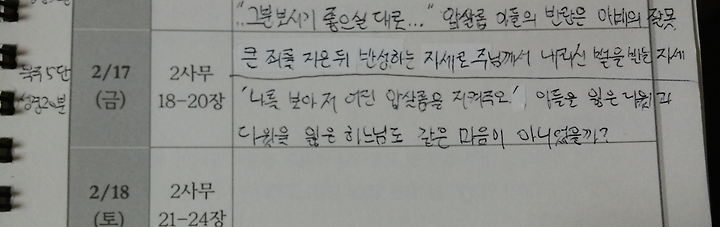 "..그분 보시기 좋으실 대로..." 압살롬 아들의 반란은 아버지의 잘못
큰 죄를 지은 뒤 반성하는 자세로 주님께서 내리신 벌을 받는 자세
묵주 5단
2/17 2사무
(금) 18-20장
'나를 보아 저 어린 압살롬을 지켜주오.' 아들을 잃은 다윗과
다윗을 잃은 하느님도 같은 마음이 아니었을까?
2/18 2사무
(토) 21-24장